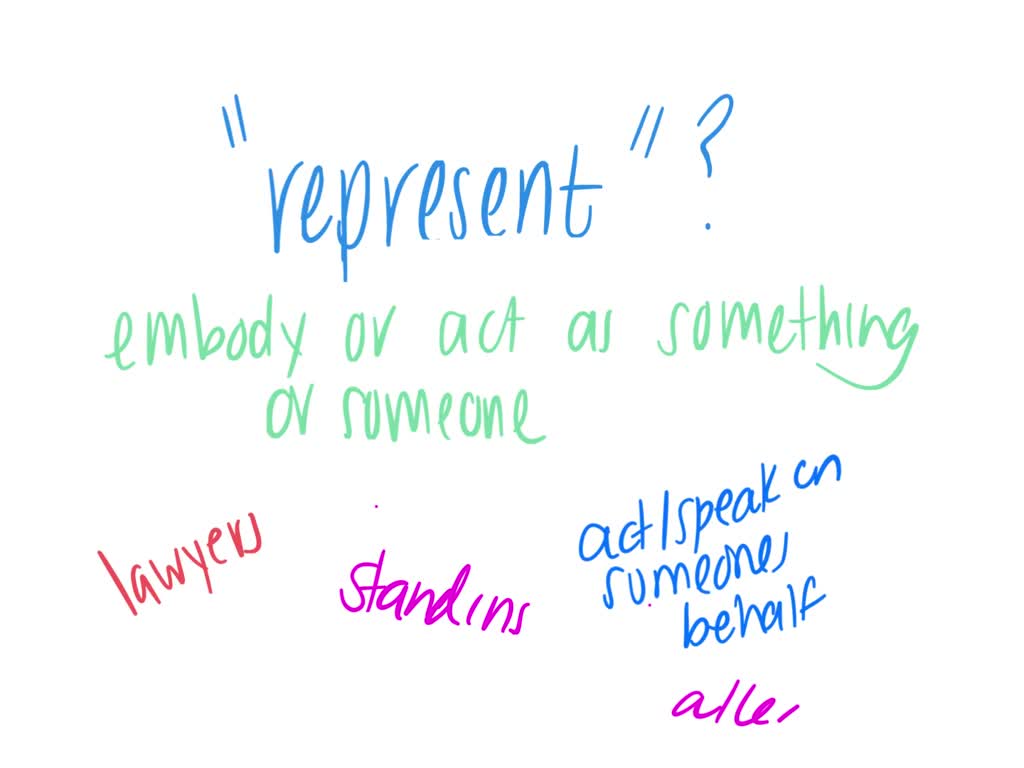 "represent"?
embody or act as something
or someone
lawyers
standins
act/speak on
someones
behalf